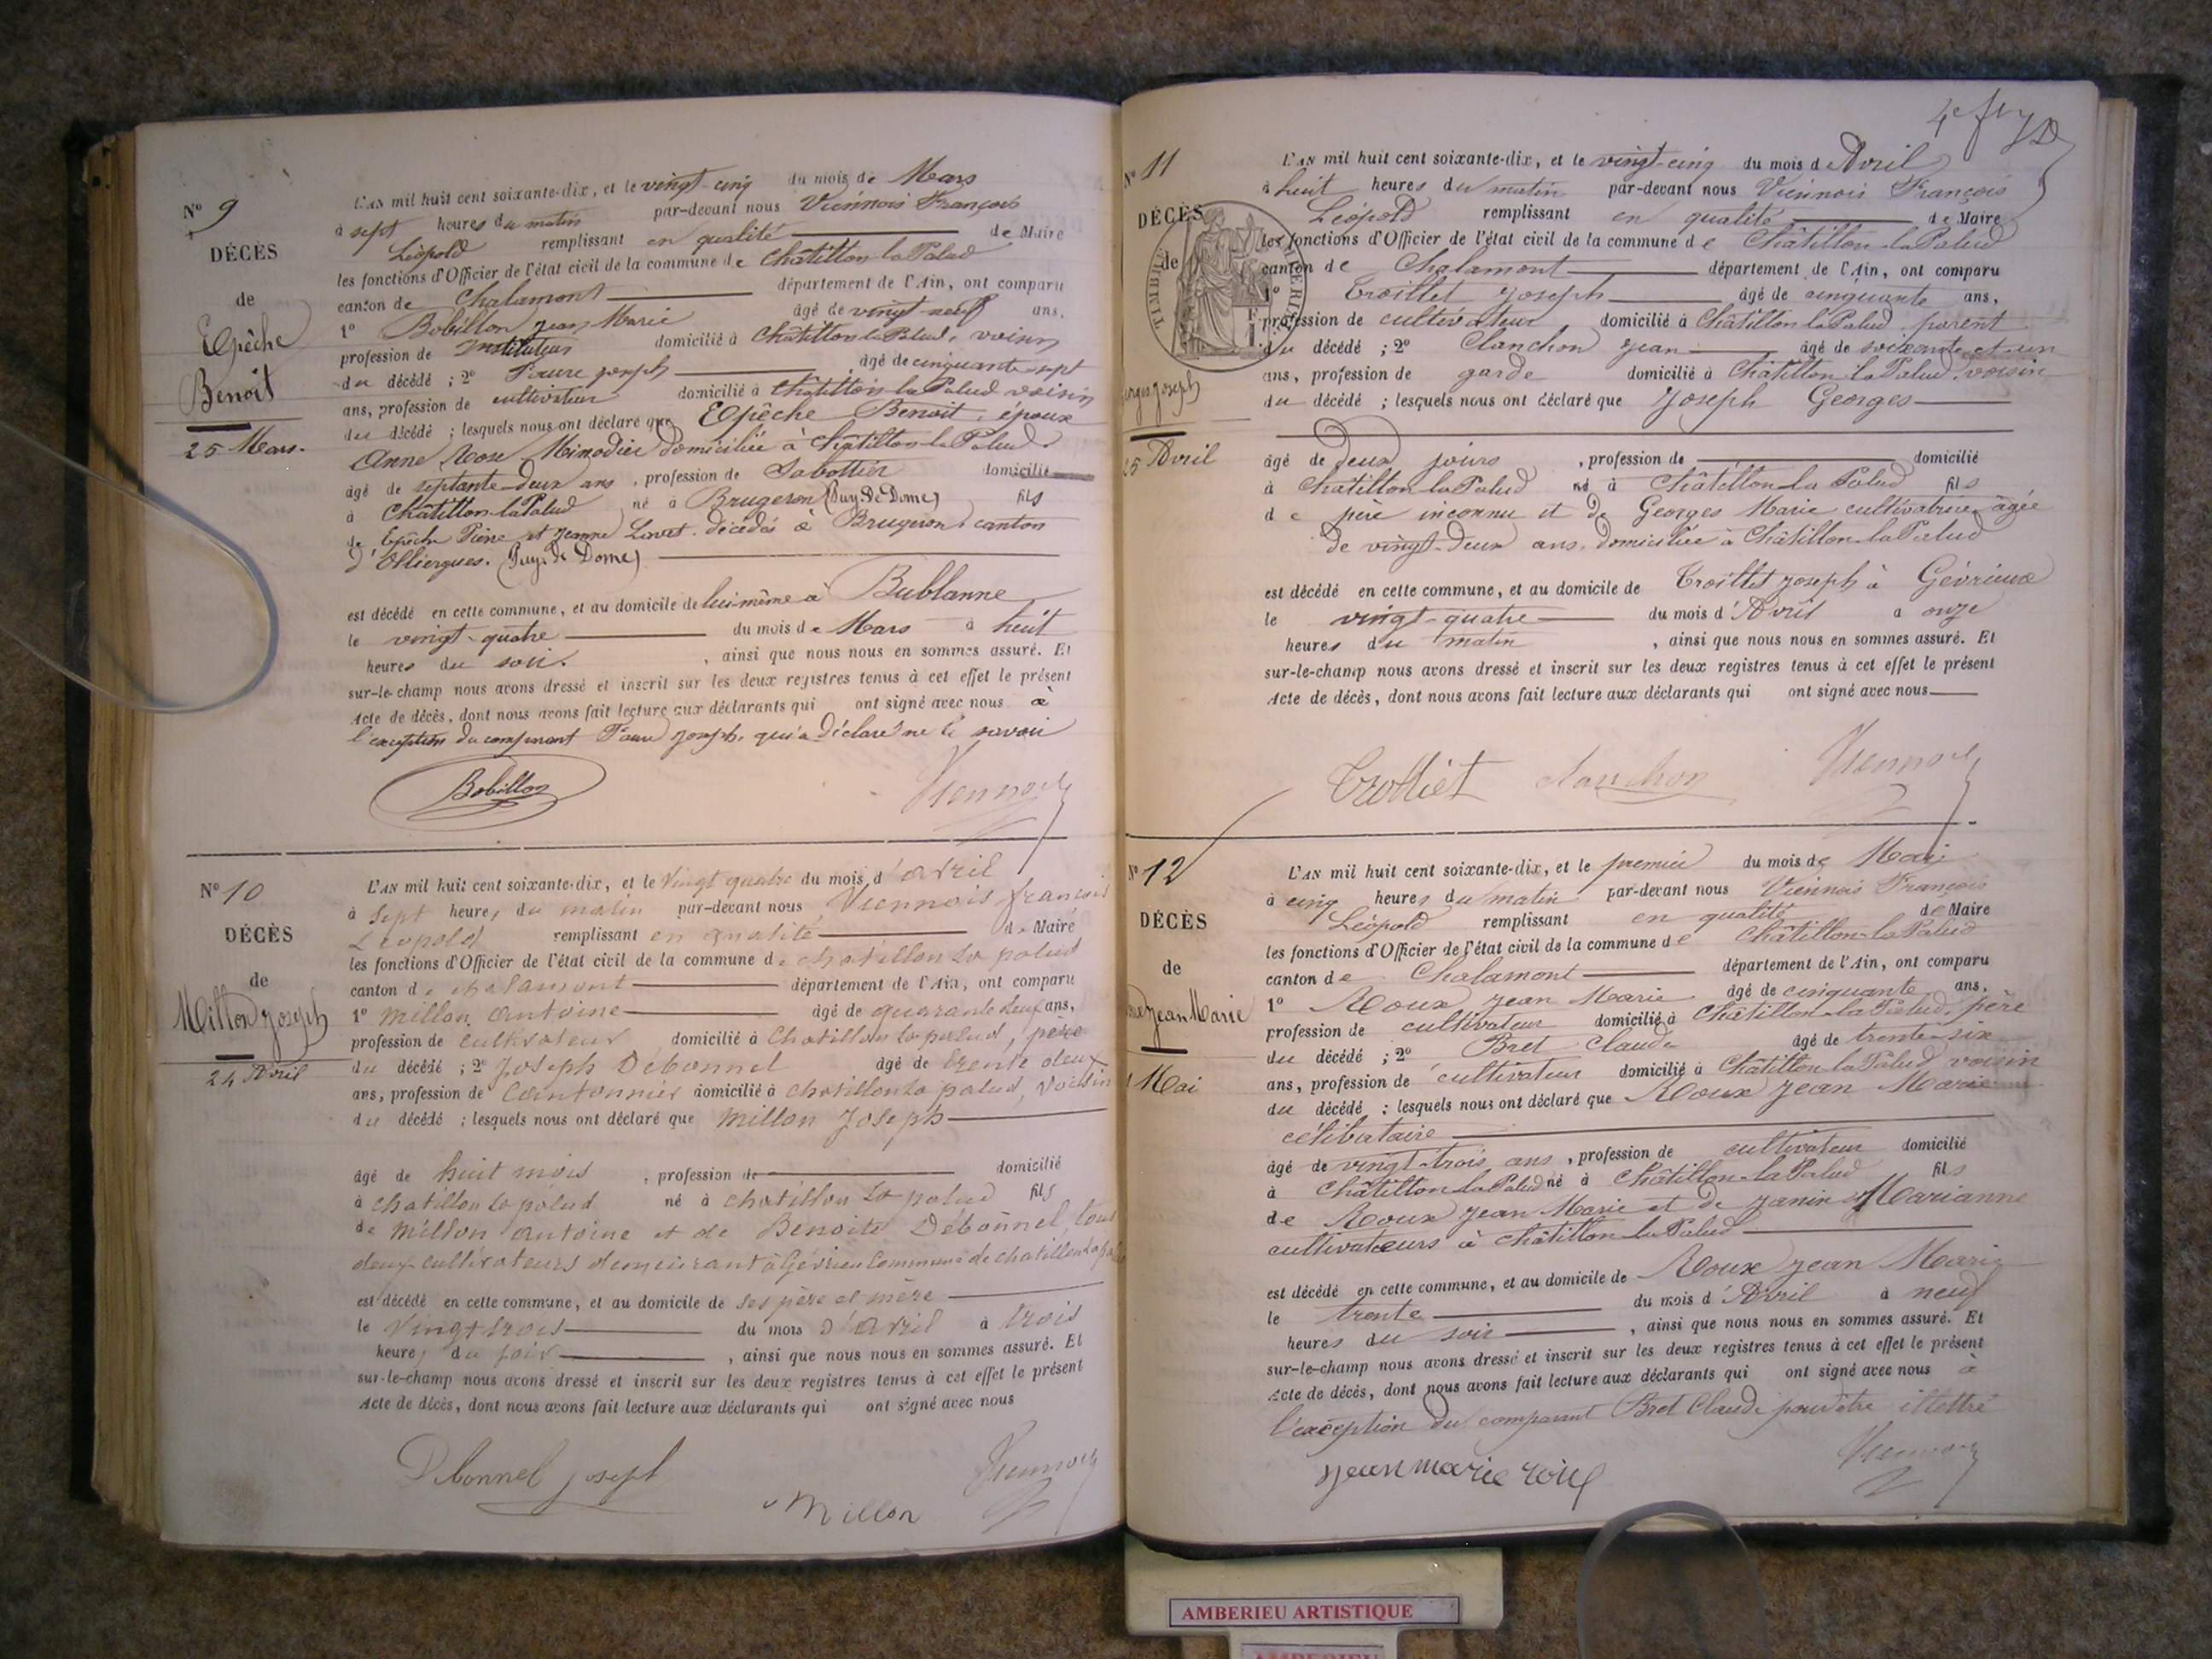 Nº 9
DÉCÈS
de
Epêche
Benoit
25 Mars.
L'AN mil huit cent soixante-dix, et le vingt-cinq du mois de Mars
à sept heures du matin par-devant nous Viennois François
Léopold remplissant en qualité de Maire
les fonctions d'Officier de l'état civil de la commune de Châtillon la Palud
canton de Chalamont département de l'Ain, ont comparu
1º Bobillon Jean Marie âgé de vingt-neuf ans,
profession de Instituteur domicilié à Châtillon la Palud, voisin
du décédé ; 2º Faure Joseph âgé de cinquante-sept
ans, profession de cultivateur domicilié à Châtillon la Palud voisin
du décédé ; lesquels nous ont déclaré que Epêche Benoit, époux
Anne Rose Mimodier domiciliée à Châtillon-la-Palud.
âgé de septante-deux ans, profession de Sabottier domicilié
à Châtillon-la-Palud né à Brugeron (Puy De Dome) fils
de Epêche Pierre et Jeanne décédés à Brugeron, canton
d'Olliergues. (Puy de Dome)
est décédé en cette commune, et au domicile de lui même à Bublanne
le vingt-quatre du mois de Mars à huit
heures du soir. , ainsi que nous nous en sommes assuré. Et
sur-le-champ nous avons dressé et inscrit sur les deux registres tenus à cet effet le présent
Acte de décès, dont nous avons fait lecture aux déclarants qui ont signé avec nous à
l'exception du comparant Faure Joseph, qui a déclaré ne le savoir
Bobillon Viennois
Nº 10
DÉCÈS
de
Millon Joseph
24 Avril
L'AN mil huit cent soixante-dix, et le Vingt quatre du mois d'avril
à Sept heures du matin par-devant nous Viennois françois
Léopold remplissant en qualité de Maire
les fonctions d'Officier de l'état civil de la commune de chatillon la palud
canton de chalamont département de l'Ain, ont comparu
1º millon antoine âgé de quarante deux ans,
profession de cultivateur domicilié à Chatillon la palud, père
du décédé ; 2º Joseph Débonnel âgé de trente deux
ans, profession de Cantonnier domicilié à chatillon la palud, voisin
du décédé ; lesquels nous ont déclaré que millon Joseph
âgé de huit mois , profession de domicilié
à chatillon la palud né à chatillon la palud fils
de millon antoine et de Benoite Débonnel, tous
deux cultivateurs demeurant à Gévrieu commune de chatillon la palud
est décédé en cette commune, et au domicile de ses père et mère
le Vingt trois du mois d'avril à trois
heures du soir , ainsi que nous nous en sommes assuré. Et
sur-le-champ nous avons dressé et inscrit sur les deux registres tenus à cet effet le présent
Acte de décès, dont nous avons fait lecture aux déclarants qui ont signé avec nous
Debonnel joseph Millon Viennois
Nº 11
DÉCÈS
de
Georges Joseph
25 Avril
TIMBRE
L'AN mil huit cent soixante-dix, et le vingt-cinq du mois de Avril
à huit heures du matin par-devant nous Viennois François
Léopold remplissant en qualité de Maire
les fonctions d'Officier de l'état civil de la commune de Châtillon-la-Palud
canton de Chalamont département de l'Ain, ont comparu
1º Trolliet Joseph âgé de cinquante ans,
profession de cultivateur domicilié à Châtillon la Palud, parent
du décédé ; 2º Clanchon Jean âgé de soixante et un
ans, profession de garde domicilié à Châtillon-la Palud, voisin
du décédé ; lesquels nous ont déclaré que Joseph Georges
âgé de deux jours , profession de domicilié
à Châtillon la Palud né à Châtillon-la Palud fils
de père inconnu et de Georges Marie cultivatrice âgée
de vingt-deux ans, domiciliée à Châtillon la Palud
est décédé en cette commune, et au domicile de Trolliet Joseph à Gévrieux
le vingt-quatre du mois d'Avril à onze
heures du matin , ainsi que nous nous en sommes assuré. Et
sur-le-champ nous avons dressé et inscrit sur les deux registres tenus à cet effet le présent
Acte de décès, dont nous avons fait lecture aux déclarants qui ont signé avec nous
Trolliet clanchon Viennois
Nº 12
DÉCÈS
de
Jean Marie
1 Mai
L'AN mil huit cent soixante-dix, et le premier du mois de Mai
à cinq heures du matin par-devant nous Viennois François
Léopold remplissant en qualité de Maire
les fonctions d'Officier de l'état civil de la commune de Châtillon-la-Palud
canton de Chalamont département de l'Ain, ont comparu
1º Roux Jean Marie âgé de cinquante ans,
profession de cultivateur domicilié à Châtillon la Palud, père
du décédé ; 2º Bret Claude âgé de trente-six
ans, profession de cultivateur domicilié à Châtillon la Palud voisin
du décédé ; lesquels nous ont déclaré que Roux Jean Marie
célibataire
âgé de vingt-trois ans , profession de cultivateur domicilié
à Châtillon-la Palud né à Châtillon-la Palud fils
de Roux Jean Marie et de Janin Marianne
cultivateurs à Châtillon la Palud
est décédé en cette commune, et au domicile de Roux Jean Marie
le trente du mois d'Avril à neuf
heures du soir , ainsi que nous nous en sommes assuré. Et
sur-le-champ nous avons dressé et inscrit sur les deux registres tenus à cet effet le présent
Acte de décès, dont nous avons fait lecture aux déclarants qui ont signé avec nous à
l'exception du comparant Bret Claude pour être illettré
jean marie roux Viennois
AMBERIEU ARTISTIQUE
AMBERIEU